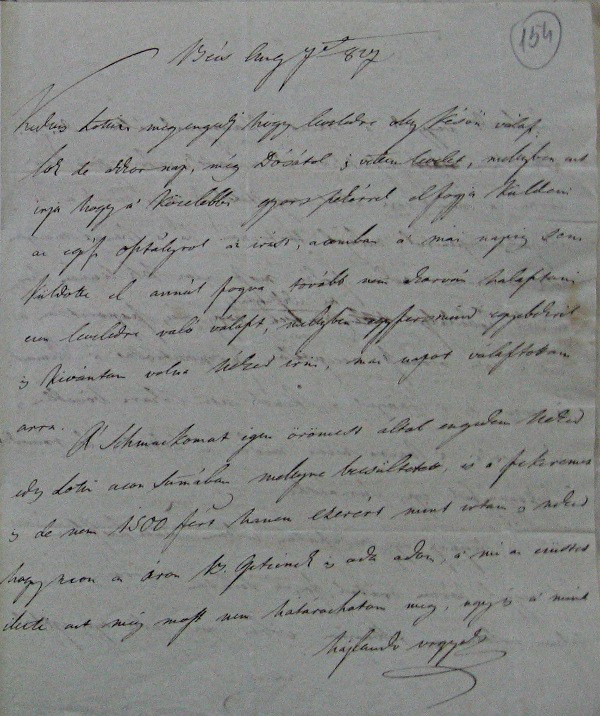 154
Bécs Aug 7 827
Kedves Lotim megengedj hogy leveledre oly késön válasz-
lok de akkor nap, még Dósától is vettem levelet, mellyben azt
irja hogy á közelebbi gyors fogja küldeni
az egész osztályrol az irást, azomban á mái napig sem
küldötte el annál fogva tovább nem akarván halasztani
ezen leveledre való választ, mellyben egyszersmind egyebekröl
is kivántam volna Néked irni, mai napot választottam
arra. Á Schmuckomat igen örömest által engedem Néked
édes Lotim azon Sumában mellyre betsültetett, is á fekeremes
is de nem 1500 frt hanem ezerért mint irtam is néked
hogy azon az áron B. is oda adom, á mi az ezüstöt
illeti azt még most nem határozhatom meg, ugy is á mint
hajlandó vagyok